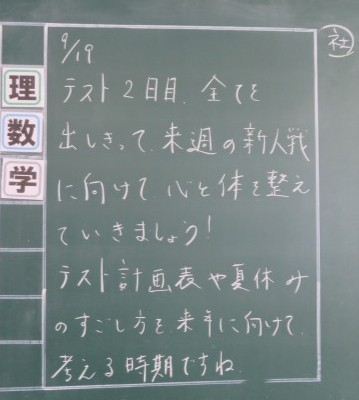 社
9/19
理
数
学
テスト2日目、全てを
出しきって、来週の新人戦
に向けて、心と体を整え
ていきましょう!
テスト計画表や夏休み
のすごし方を、来年に向けて、
考える時期ですね。